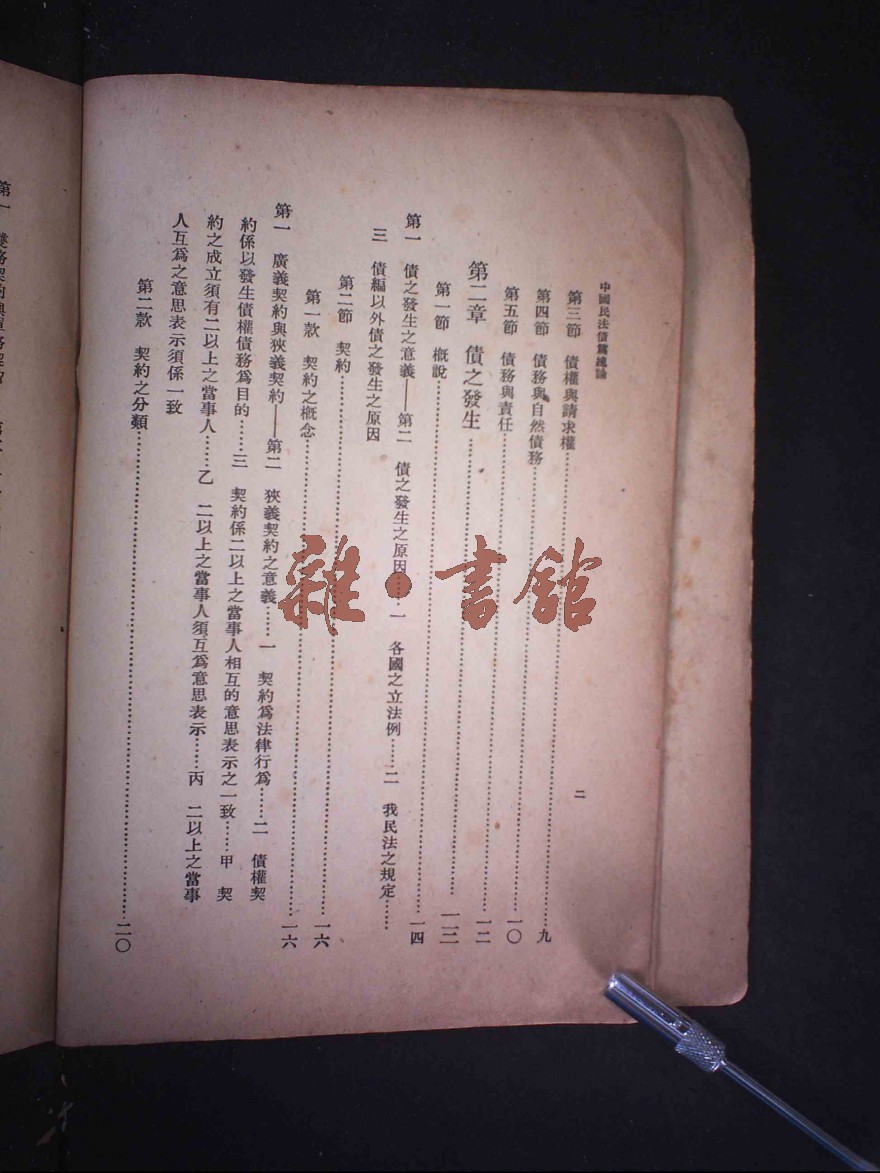 中國民法債篇總論
二
第三節 債權與請求權……九
第四節 債務與自然債務……一〇
第五節 債務與責任……一二
第二章 債之發生……一三
第一節 概說……一四
第一 債之發生之意義——第二 債之發生之原因……一 各國之立法例……二 我民法之規定……
三 債編以外債之發生之原因
第二節 契約……一六
第一款 契約之概念……一六
第一 廣義契約與狹義契約——第二 狹義契約之意義……一 契約爲法律行爲……二 債權契
約係以發生債權債務爲目的……三 契約係二以上之當事人相互的意思表示之一致……甲 契
約之成立須有二以上之當事人……乙 二以上之當事人須互爲意思表示……丙 二以上之當事
人互爲之意思表示須係一致
第二款 契約之分類……二〇
雜·書館